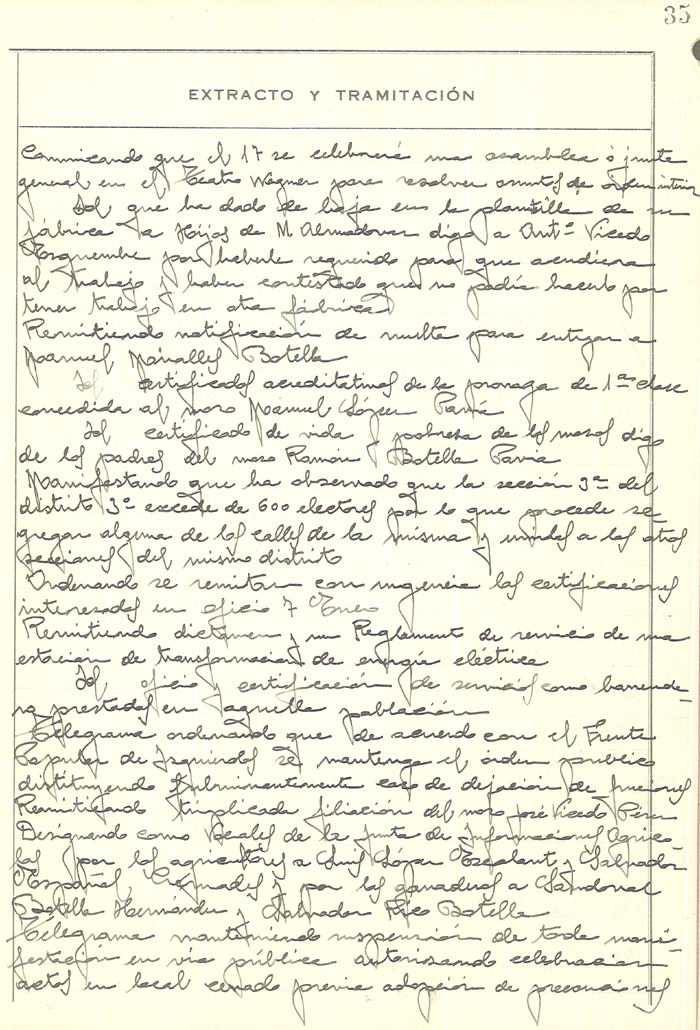 35
EXTRACTO Y TRAMITACIÓN
Comunicando que el 17 se celebrará una asamblea ó junta
general en el Teatro Wagner para resolver asuntos de orden interior
Id. que ha dado de baja en la plantilla de su
fábrica a Hijos de M. Almodovar digo a Antº Vicedo
por haberle requerido para que acudiera
al trabajo y haber contestado que no podía hacerlo por
tener trabajo en otra fábrica
Remitiendo notificación de multa para entregar a
Manuel Botella
Id. certificados acreditativos de la prorroga de 1ª clase
concedida al mozo Manuel López Pavía
Id certificado de vida y pobreza de los mozos digo
de los padres del mozo Ramón Botella Pavia
Manifestando que ha observado que la sección 3ª del
distrito 3º excede de 600 electores por lo que procede se-
gregar alguna de las calles de la misma y unirlas a las otras
secciones del mismo distrito
Ordenando se remitan con urgencia las certificaciones
interesadas en oficio 7 Enero
Remitiendo dictamen y un Reglamento de servicio de una
estación de transformación de energía eléctrica
Id. oficio y certificación de servicios como barrende-
ro prestados en aquella población
Telegrama ordenando que de acuerdo con el Frente
Popular de Izquierdas se mantenga el órden público
destituyendo fulminantemente caso de dejación de funciones
Remitiendo triplicada filiación del mozo José Vicedo Pérez
Designando como Vocales de la Junta de Informaciones Agríco-
las por los agricultores a Luis López y Salvador
Español y por los ganaderos a Sandoval
Botella Hernández y Salvador Rico Botella
Telegrama manteniendo suspensión de toda mani-
festación en via pública autorizando celebracion
actos en local cerrado previa adopción de precauciones